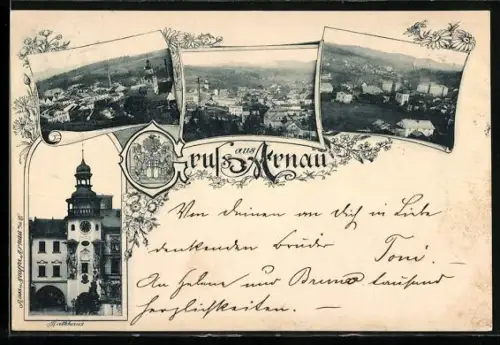 Gruss aus Arnau
Von deinen an dich in Liebe
denkenden Bruder Toni.
An Helene und Bruno tausend
Herzlichkeiten. -
Rathhaus